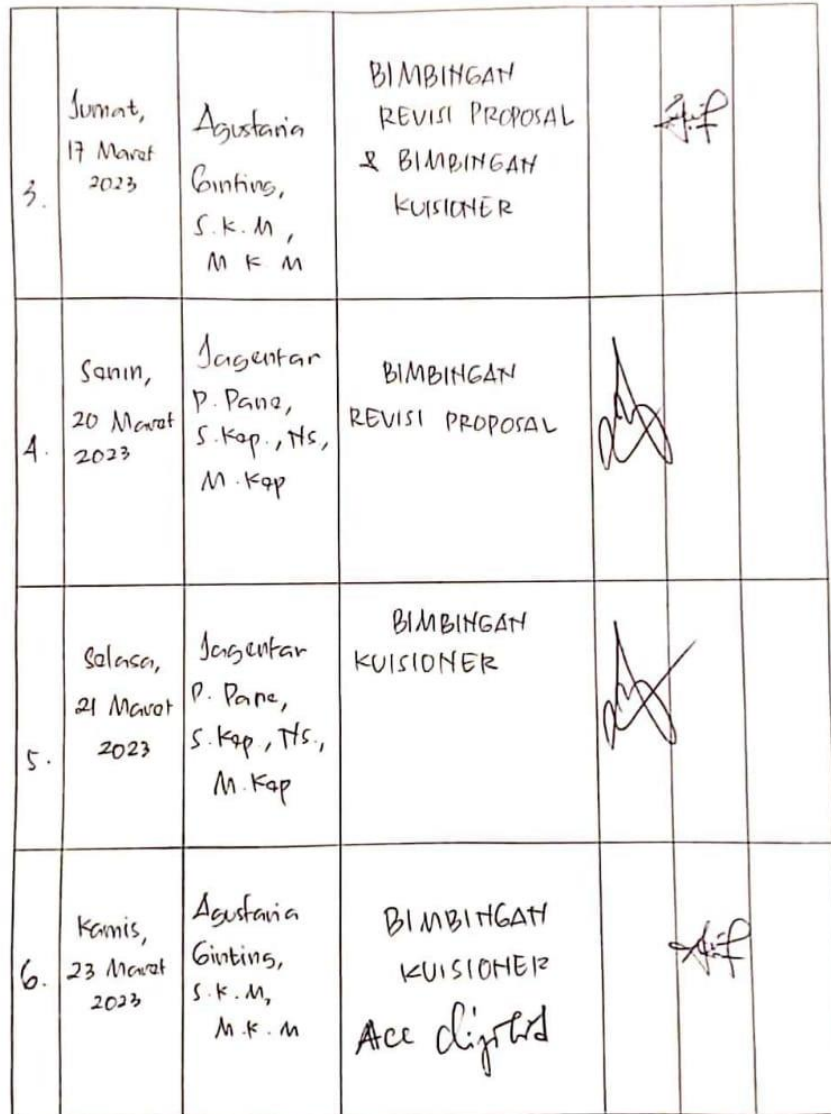 3.
Jumat,
17 Maret
2023
Agustaria
Ginting,
S.K.M,
M K M
BIMBINGAN
REVISI PROPOSAL
& BIMBINGAN
KUISIONER
4.
Senin,
20 Maret
2023
Jagentar
P. Pane,
S.Kep., Ns,
M.Kep
BIMBINGAN
REVISI PROPOSAL
5.
Selasa,
21 Maret
2023
Jagentar
P. Pane,
S.Kep., Ns.,
M.Kep
BIMBINGAN
KUISIONER
6.
Kamis,
23 Maret
2023
Agustaria
Ginting,
S.K.M,
M.K.M
BIMBINGAN
KUISIONER
Acc